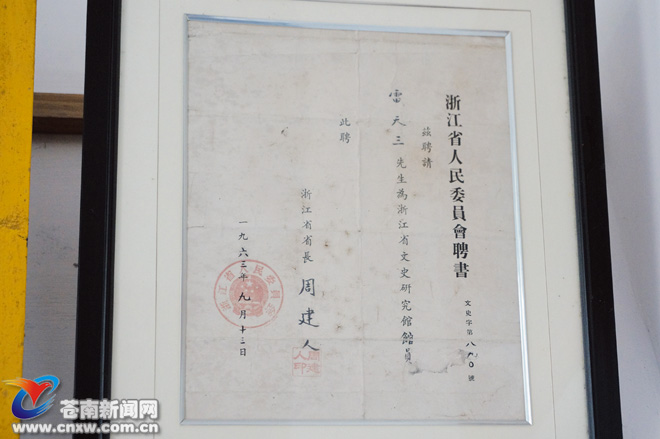 浙江省人民委員會聘書
文史字第八〇號
茲聘請
雷天三先生為浙江省文史研究館館員
此聘
浙江省省長 周建人
周建人印
一九六三年九月十三日
浙江省人民委員會
苍南新闻网
www.cnxw.com.cn